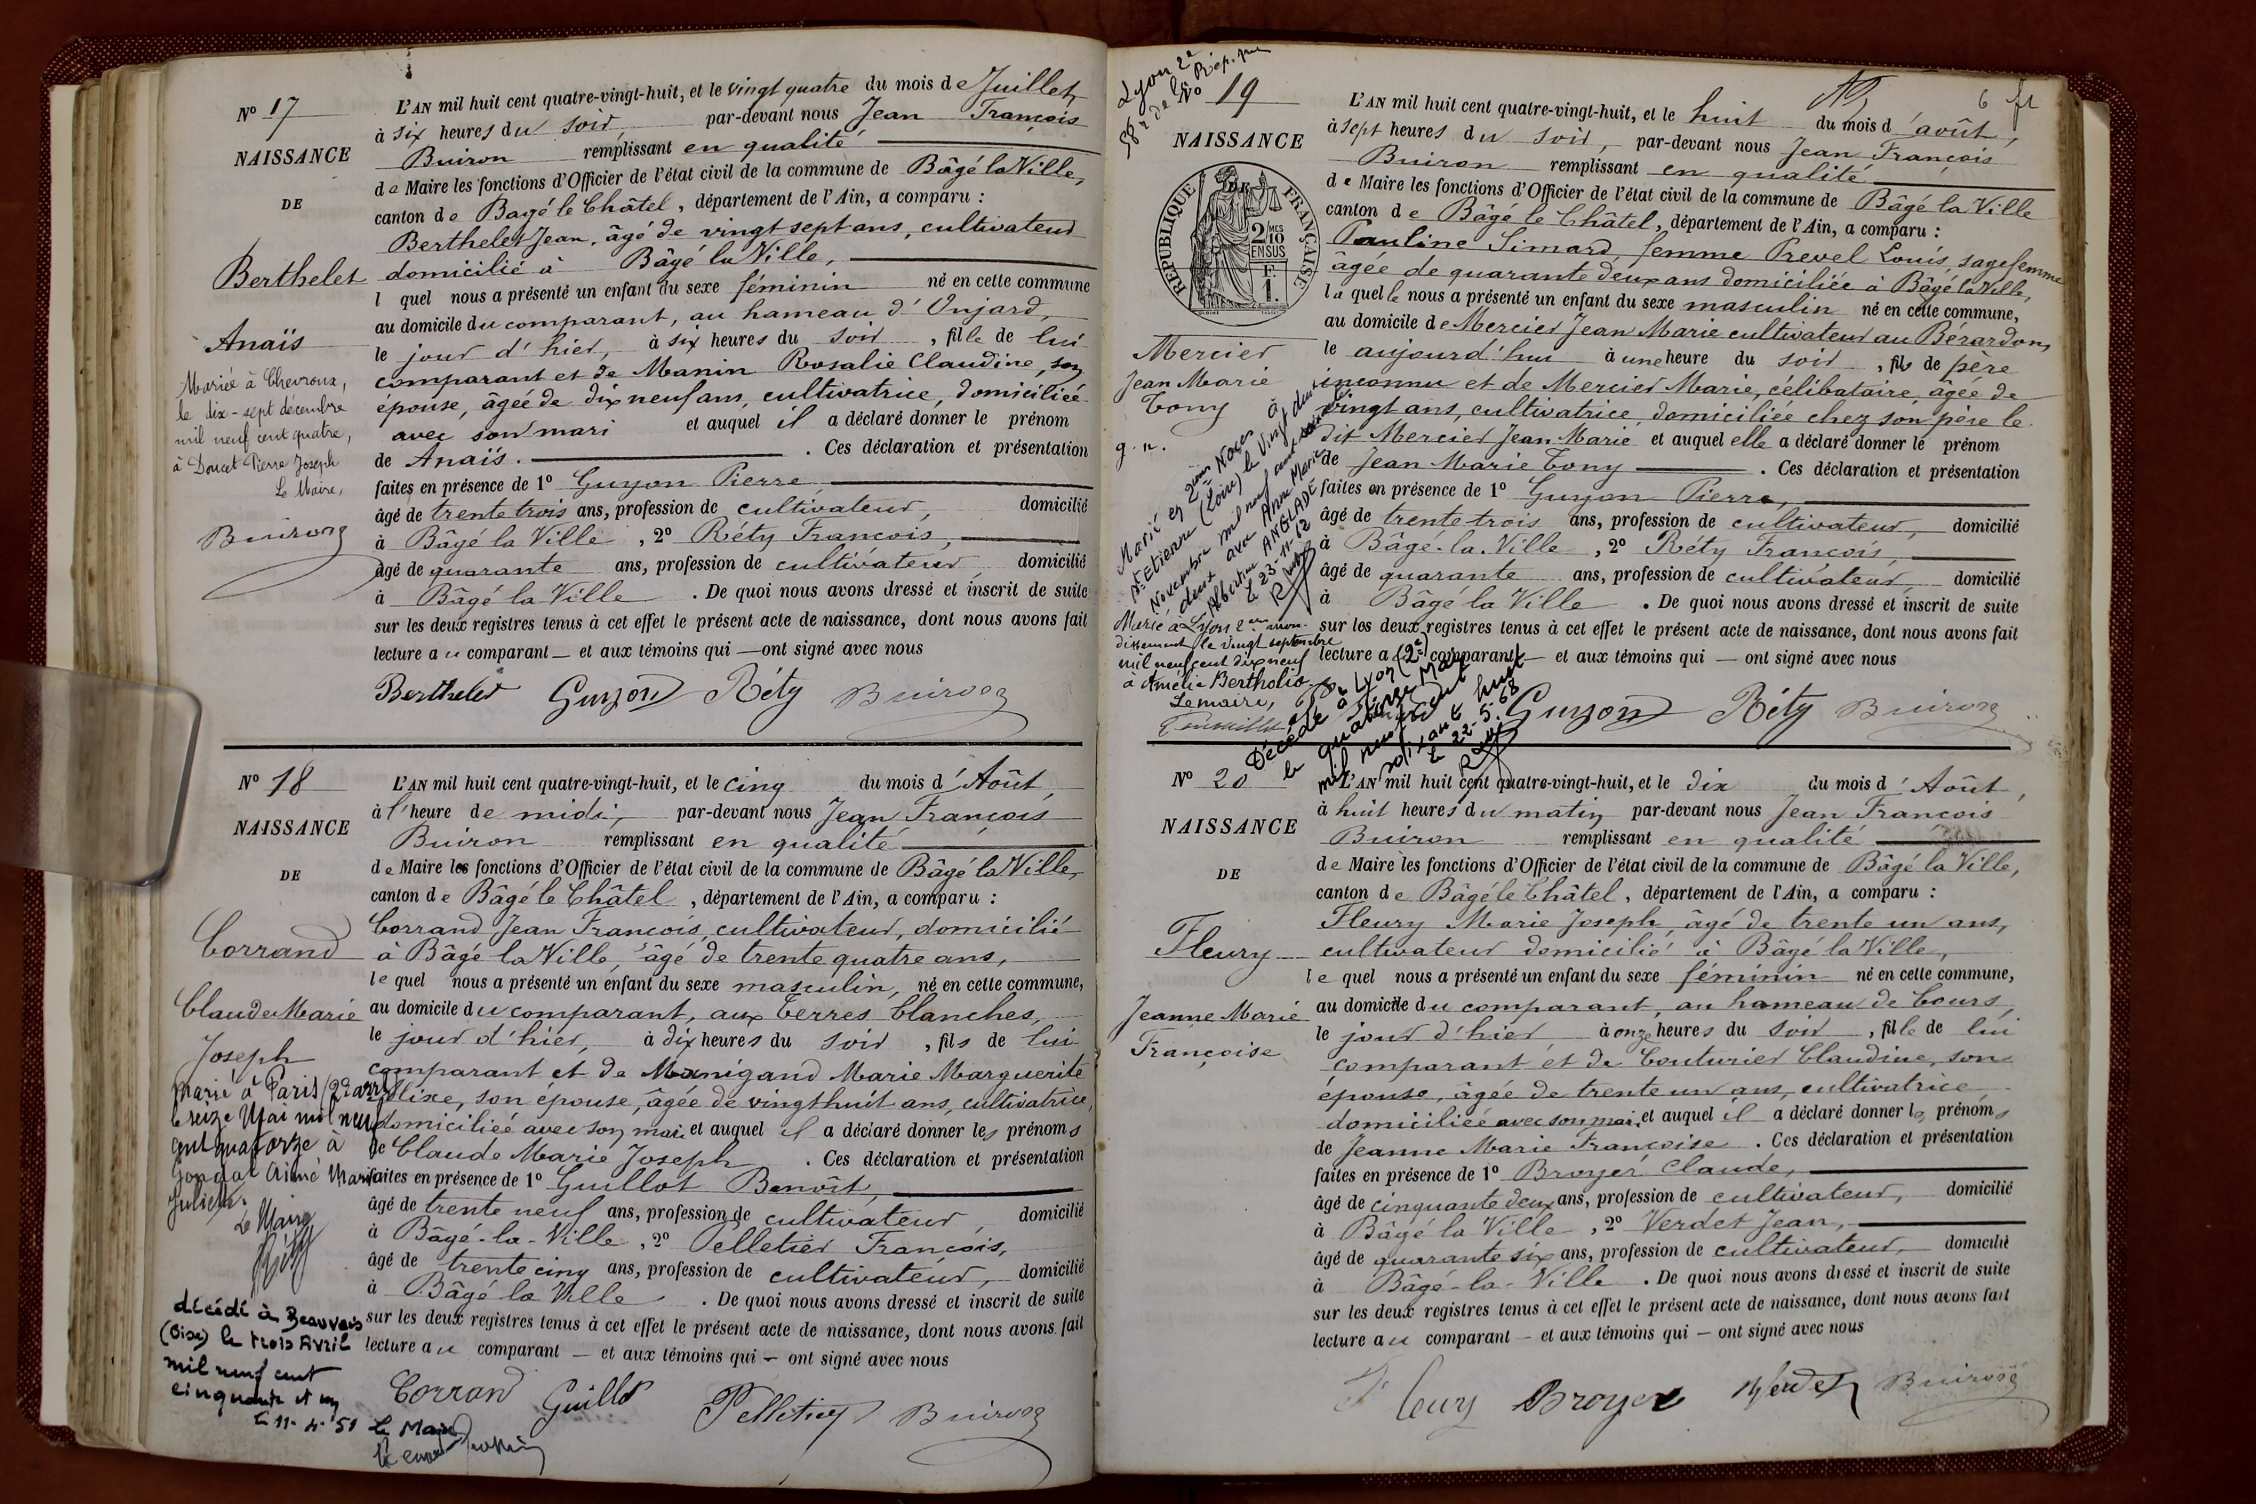 N° 17
NAISSANCE
DE
Berthelet
Anaïs
Mariée à Chevroux,
le dix-sept décembre
mil neuf cent quatre,
à Doucet Pierre Joseph
Le Maire,
Buiron
L'AN mil huit cent quatre-vingt-huit, et le vingt quatre du mois de Juillet,
à six heures du soir, par-devant nous Jean François
Buiron remplissant en qualité
de Maire les fonctions d'Officier de l'état civil de la commune de Bâgé la Ville,
canton de Bagé le Châtel, département de l'Ain, a comparu :
Berthelet Jean, âgé de vingt sept ans, cultivateur
domicilié à Bâgé la Ville,
l quel nous a présenté un enfant du sexe féminin né en cette commune
au domicile du comparant, au hameau d'Onjard,
le jour d'hier, à six heures du soir, fille de lui
comparant et de Manin Rosalie Claudine, son
épouse, âgée de dix neuf ans, cultivatrice, domiciliée
avec son mari et auquel il a déclaré donner le prénom
de Anaïs. Ces déclaration et présentation
faites en présence de 1° Guyon Pierre,
âgé de trente trois ans, profession de cultivateur, domicilié
à Bâgé la Ville, 2° Réty François,
âgé de quarante ans, profession de cultivateur domicilié
à Bâgé la Ville. De quoi nous avons dressé et inscrit de suite
sur les deux registres tenus à cet effet le présent acte de naissance, dont nous avons fait
lecture au comparant — et aux témoins qui — ont signé avec nous
Berthelet Guyon Réty Buiron
N° 18
NAISSANCE
DE
Corrand
Claude Marie
Joseph
Marié à Paris (2e arrt)
le seize Mai mil neuf
cent quatorze à
Aimé Marie
Le Maire
décédé à Beauvais
(Oise) le trois Avril
mil neuf cent
cinquante et un
le 11-4-51 Le Maire
L'AN mil huit cent quatre-vingt-huit, et le cinq du mois d'Août,
à l'heure de midi, par-devant nous Jean François
Buiron remplissant en qualité
de Maire les fonctions d'Officier de l'état civil de la commune de Bâgé la Ville,
canton de Bâgé le Châtel, département de l'Ain, a comparu :
Corrand Jean François, cultivateur, domicilié
à Bâgé la Ville, âgé de trente quatre ans,
le quel nous a présenté un enfant du sexe masculin, né en cette commune,
au domicile du comparant, aux Terres Blanches,
le jour d'hier, à dix heures du soir, fils de lui
comparant et de Manigand Marie Marguerite
son épouse, âgée de vingt huit ans, cultivatrice,
domiciliée avec son mari et auquel il a déclaré donner les prénoms
de Claude Marie Joseph. Ces déclaration et présentation
faites en présence de 1° Guillot Benoît,
âgé de trente neuf ans, profession de cultivateur, domicilié
à Bâgé-la-Ville, 2° Pelletier François,
âgé de trente cinq ans, profession de cultivateur, domicilié
à Bâgé la Ville. De quoi nous avons dressé et inscrit de suite
sur les deux registres tenus à cet effet le présent acte de naissance, dont nous avons fait
lecture au comparant — et aux témoins qui — ont signé avec nous
Corrand Guillot Pelletier Buiron
Lyon 2e
58 r de la Rép.
6
N° 19
NAISSANCE
DE
REPUBLIQUE FRANÇAISE
2/10 MES EN SUS
F. 1.
Mercier
Jean Marie
Tony
g. n.
Marié en 2èmes Noces à
St Etienne (Loire) le Vingt deux
Novembre mil neuf cent soixante
deux avec Anne Marie
Albertine ANGLADE
le 23-11-62
Marié à Lyon 2e arron-
dissement le vingt septembre
mil neuf cent dix neuf
à Amélie Bertholio
Le maire,
Décédé à Lyon (2e)
le quatorze Mai
mil neuf cent
soixante huit
le 22.5.68
L'AN mil huit cent quatre-vingt-huit, et le huit du mois d'août,
à sept heures du soir, par-devant nous Jean François
Buiron remplissant en qualité
de Maire les fonctions d'Officier de l'état civil de la commune de Bâgé la Ville
canton de Bâgé le Châtel, département de l'Ain, a comparu :
Pauline Simard femme Prevel Louis, sage femme
âgée de quarante deux ans domiciliée à Bâgé la Ville,
la quelle nous a présenté un enfant du sexe masculin né en cette commune,
au domicile de Mercier Jean Marie cultivateur au Bérardon,
le aujourd'hui à une heure du soir, fils de père
inconnu et de Mercier Marie, célibataire, âgée de
vingt ans, cultivatrice, domiciliée chez son père le
dit Mercier Jean Marie et auquel elle a déclaré donner le prénom
de Jean Marie Tony. Ces déclaration et présentation
faites en présence de 1° Guyon Pierre,
âgé de trente trois ans, profession de cultivateur, domicilié
à Bâgé-la-Ville, 2° Réty François,
âgé de quarante ans, profession de cultivateur, domicilié
à Bâgé la Ville. De quoi nous avons dressé et inscrit de suite
sur les deux registres tenus à cet effet le présent acte de naissance, dont nous avons fait
lecture a comparant — et aux témoins qui — ont signé avec nous
Guyon Réty Buiron
N° 20
NAISSANCE
DE
Fleury
Jeanne Marie
Françoise
L'AN mil huit cent quatre-vingt-huit, et le dix du mois d'Août,
à huit heures du matin par-devant nous Jean François
Buiron remplissant en qualité
de Maire les fonctions d'Officier de l'état civil de la commune de Bâgé la Ville,
canton de Bâgé le Châtel, département de l'Ain, a comparu :
Fleury Marie Joseph, âgé de trente un ans,
cultivateur domicilié à Bâgé la Ville,
le quel nous a présenté un enfant du sexe féminin né en cette commune,
au domicile du comparant, au hameau de Cours,
le jour d'hier à onze heures du soir, fille de lui
comparant et de Couturier Claudine, son
épouse, âgée de trente un ans, cultivatrice
domiciliée avec son mari, et auquel il a déclaré donner les prénoms
de Jeanne Marie Françoise. Ces déclaration et présentation
faites en présence de 1° Broyer Claude,
âgé de cinquante deux ans, profession de cultivateur, domicilié
à Bâgé la Ville, 2° Verdet Jean,
âgé de quarante six ans, profession de cultivateur, domicilié
à Bâgé-la-Ville. De quoi nous avons dressé et inscrit de suite
sur les deux registres tenus à cet effet le présent acte de naissance, dont nous avons fait
lecture au comparant — et aux témoins qui — ont signé avec nous
Fleury Broyer Verdet Buiron